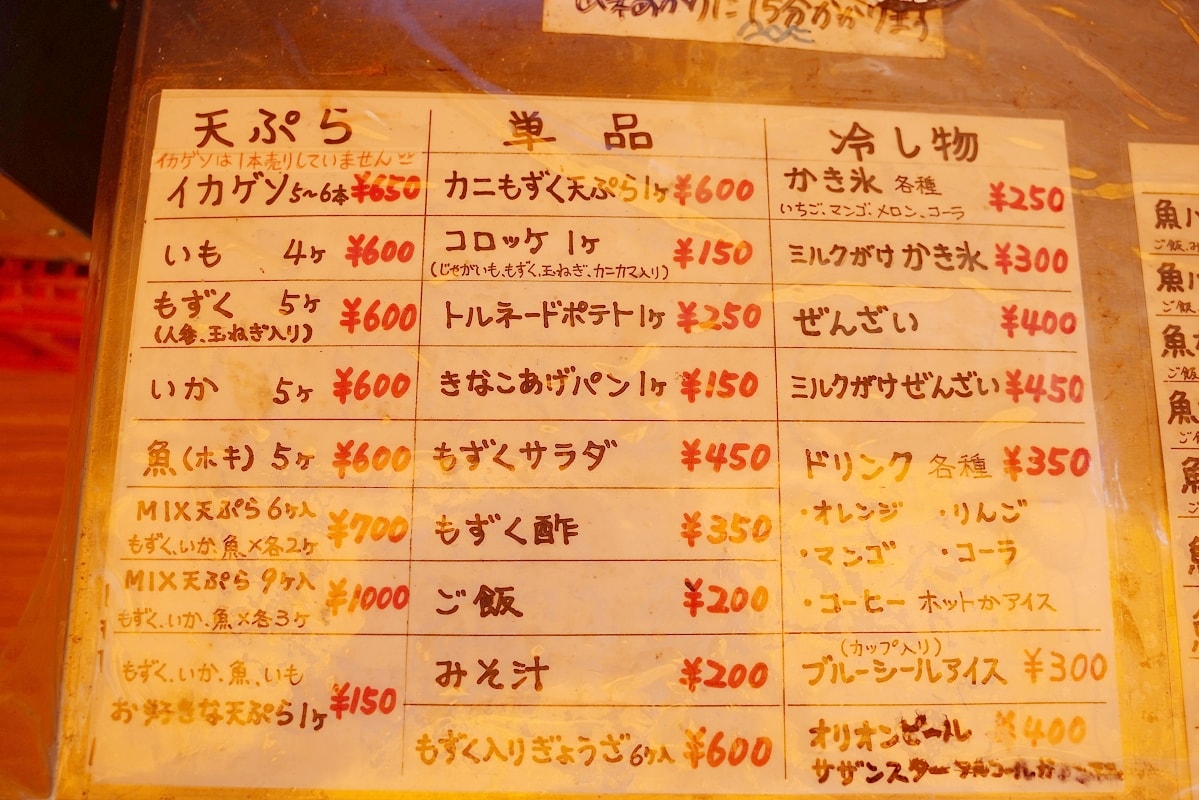 15分かかります
天ぷら
イカゲソは1本売りしていません
イカゲソ 5〜6本 ¥650
いも 4ヶ ¥600
もずく 5ヶ ¥600
(人参、玉ねぎ入り)
いか 5ヶ ¥600
魚(ホキ) 5ヶ ¥600
MIX天ぷら 6ヶ入 ¥700
もずく、いか、魚×各2ヶ
MIX天ぷら 9ヶ入 ¥1000
もずく、いか、魚×各3ヶ
もずく、いか、魚、いも
お好きな天ぷら1ヶ ¥150
単品
カニもずく天ぷら1ヶ ¥600
コロッケ 1ヶ ¥150
(じゃがいも、もずく、玉ねぎ、カニカマ入り)
トルネードポテト1ヶ ¥250
きなこあげパン1ヶ ¥150
もずくサラダ ¥450
もずく酢 ¥350
ご飯 ¥200
みそ汁 ¥200
もずく入りぎょうざ 6ヶ入 ¥600
冷し物
かき氷 各種 ¥250
いちご、マンゴ、メロン、コーラ
ミルクがけ かき氷 ¥300
ぜんざい ¥400
ミルクがけぜんざい ¥450
ドリンク 各種 ¥350
・オレンジ ・りんご
・マンゴ ・コーラ
・コーヒー ホットかアイス
(カップ入り)
ブルーシールアイス ¥300
オリオンビール ¥400
サザンスター
魚
ご飯、
魚
ご飯
魚
ご飯
魚
ご
魚
魚